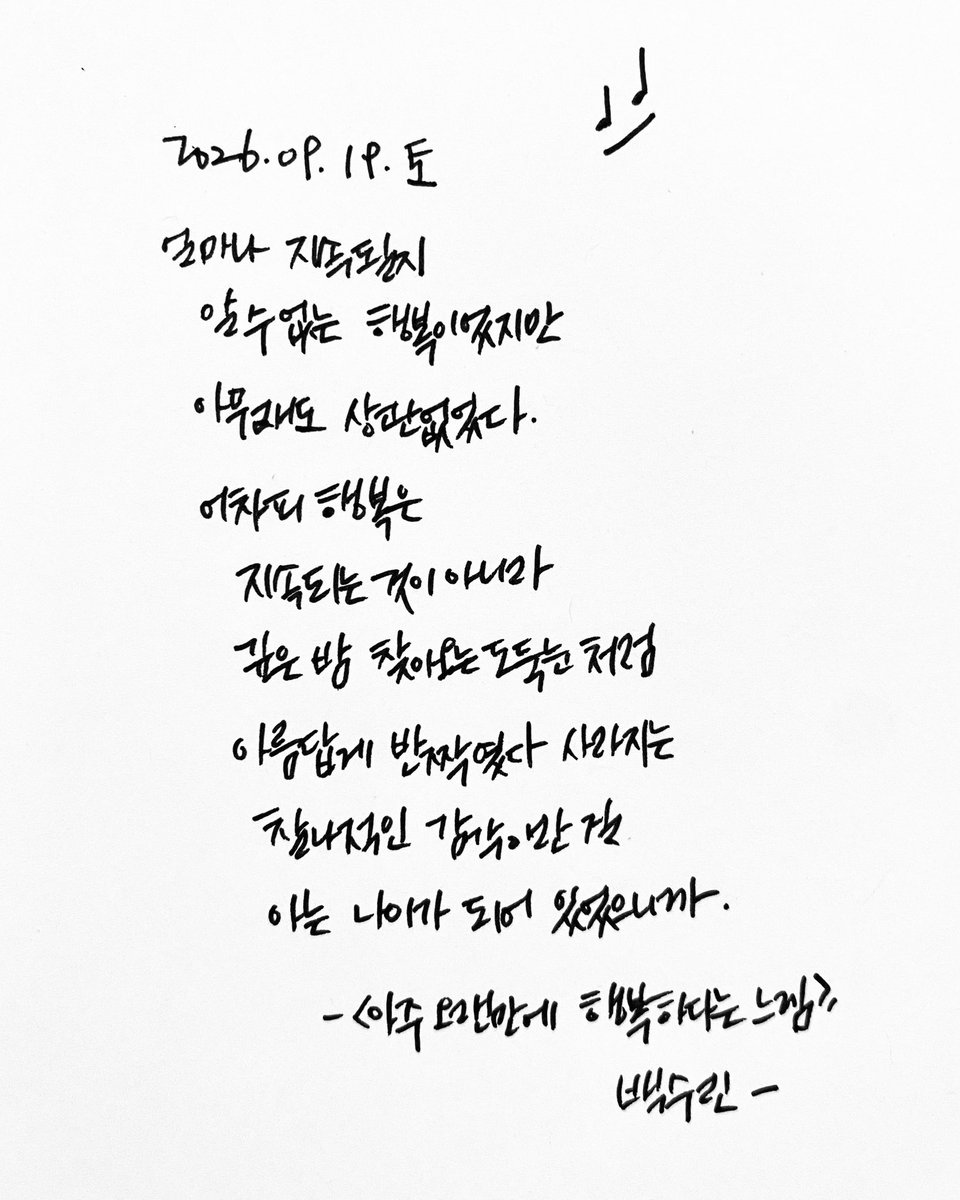 2026.09.19.토
얼마나 지속될지
알 수 없는 행복이었지만
아무래도 상관없었다.
어차피 행복은
지속되는 것이 아니라
깊은 밤 찾아오는 도둑눈처럼
아름답게 반짝였다 사라지는
찰나적인 감각이란 걸
아는 나이가 되어 있었으니까.
-<아주 오랜만에 행복하다는 느낌>
백수린-